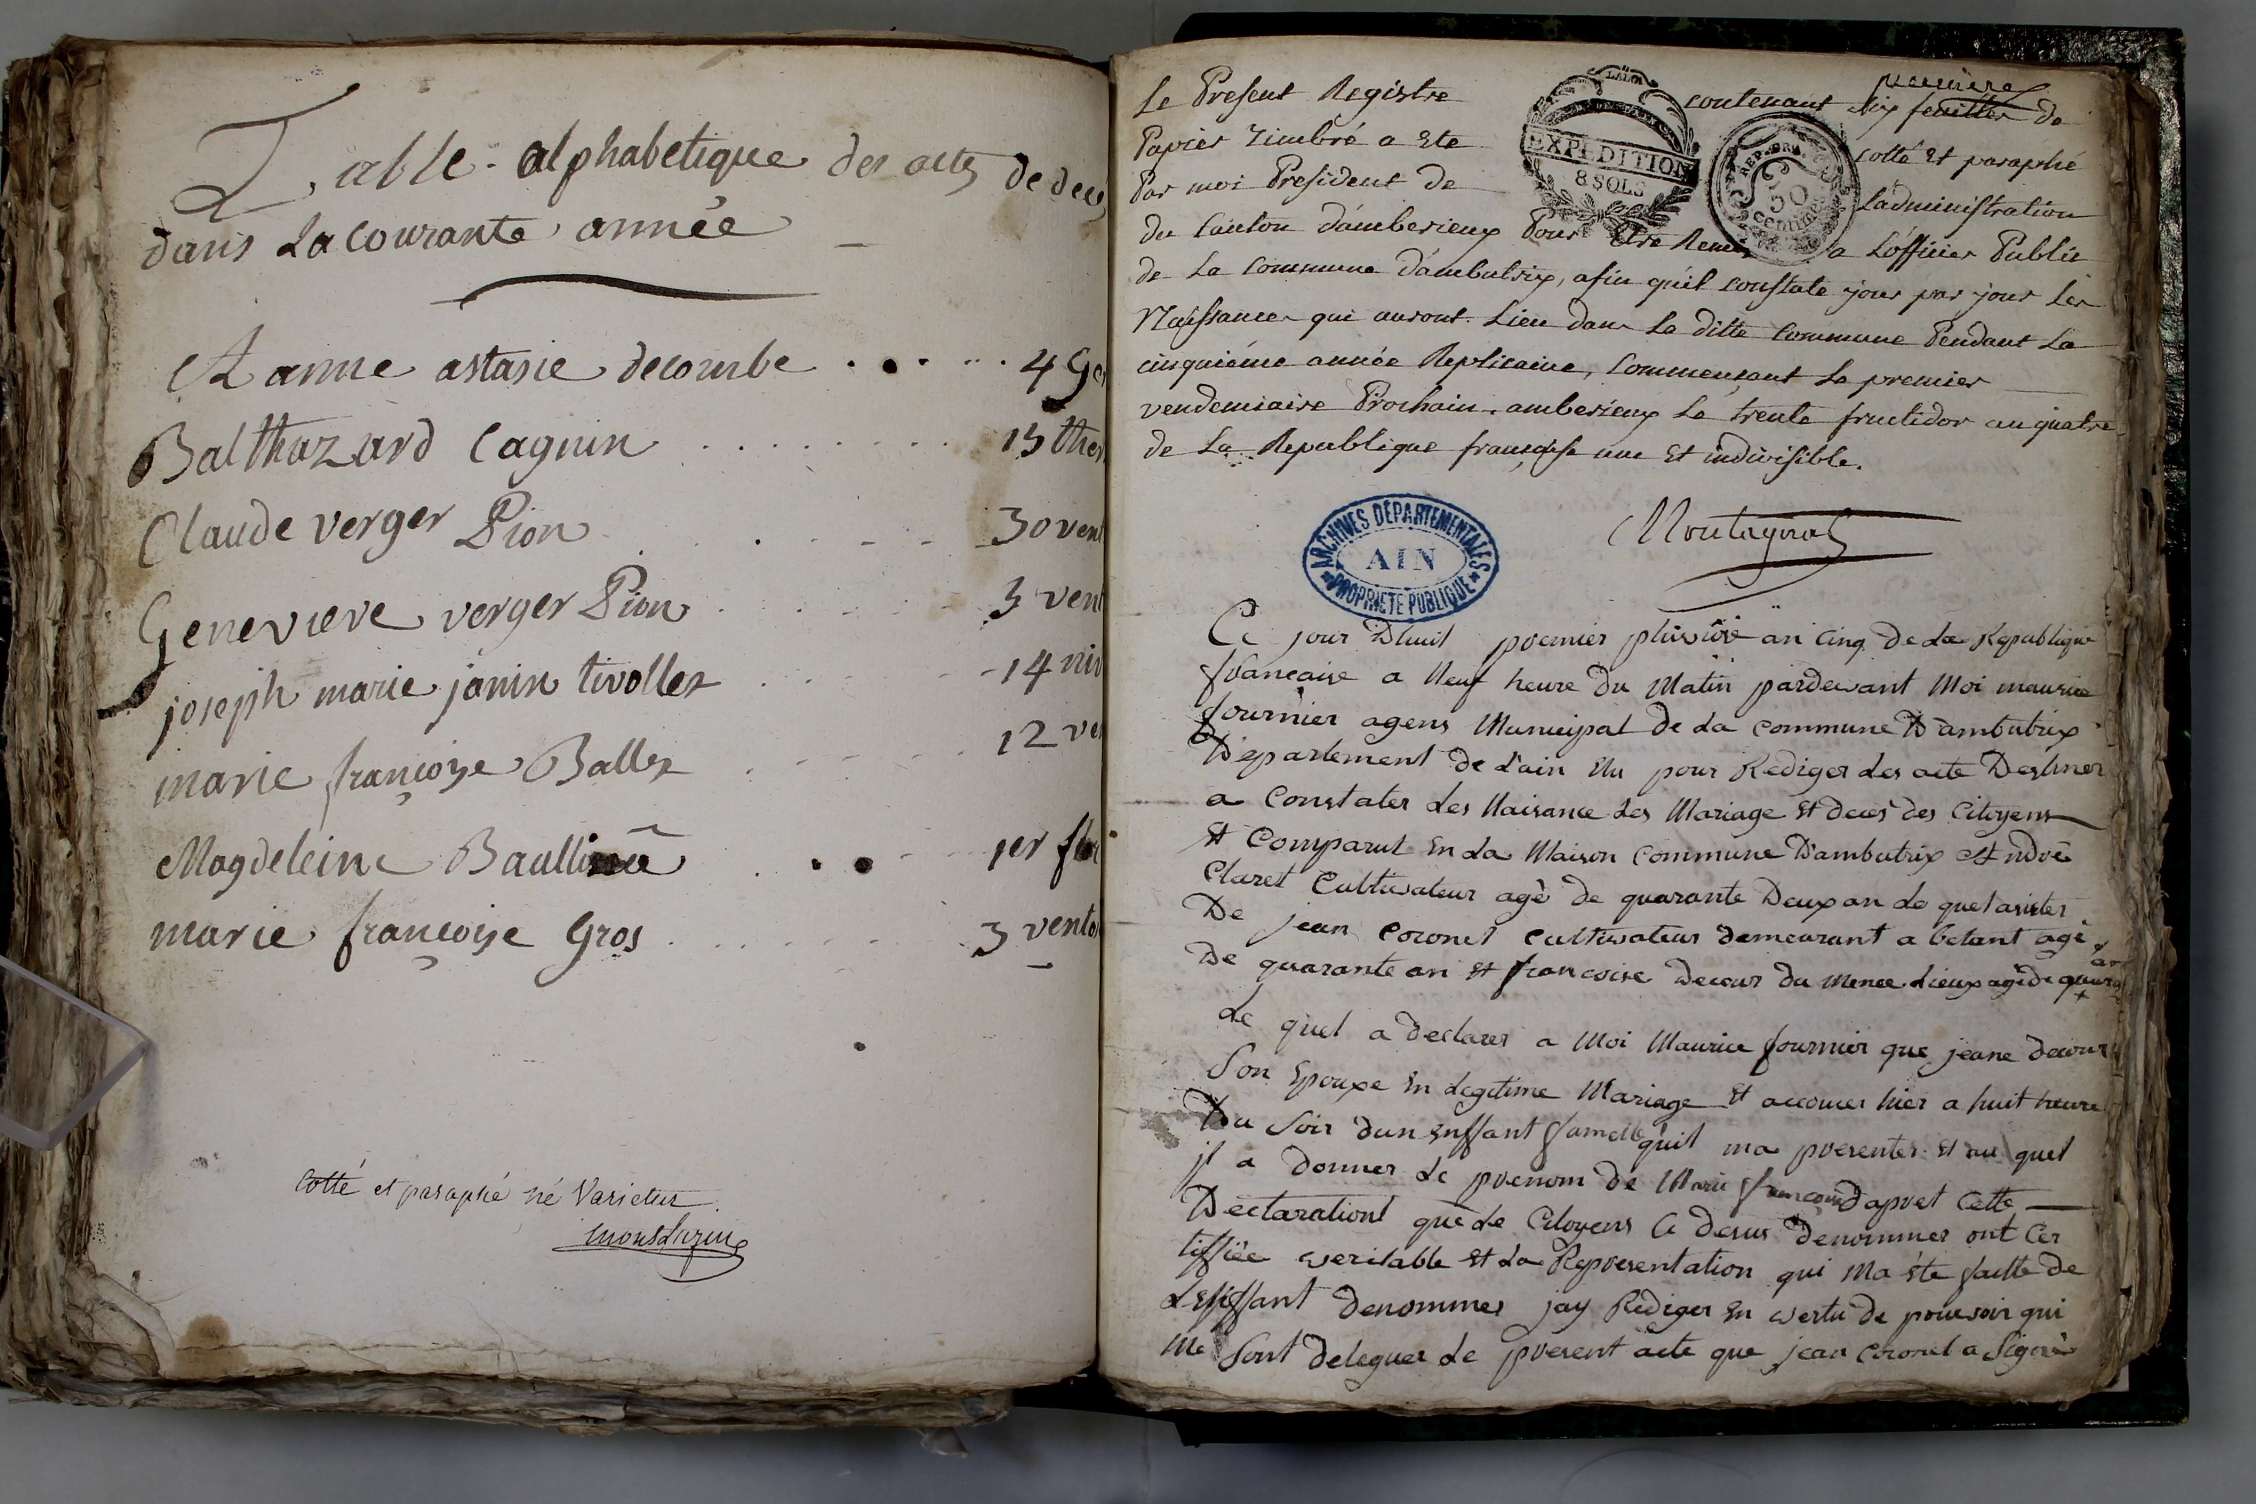 Table alphabetique des actes de dec
dans La courante année
Anne astasie decombe 4 Ger
Balthazard Cagnin 13 ther
Claude verger Pion 30 vent
Genevieve verger Pion 3 vent
joseph marie janin tivollet 14 niv
marie françoise Ballet 12 ve
Magdeleine 1er flo
marie françoise Gros 3 vento
Cotté et paraphé né Varietur
premiere
Le Present Registre contenant six feuilles de
Papier Timbré a Ete cotté Et paraphé
Par moi President de Ladministration
du Canton d'amberieux Pour Etre Remis a L'officier Public
de La Commune d'ambutrix, afin qu'il constate jour par jour Les
Naissances qui auront Lieu dans La ditte Commune Pendant La
cinquiéme année Replicaine, Commençant Le premier
vendemiaire Prochain. amberieux Le trente fructidor an quatre
de La Republique française une Et indivisible.
LALOI
EXPEDITION
8 SOLS
REP. FRA.
50
centimes
Montagnat
ARCHIVES DÉPARTEMENTALES
AIN
PROPRIETE PUBLIQUE
Ce jour Dhuit premier pluviôse an Cinq de La Republique
francaise a Neuf heure Du Matin pardevant Moi maurice
fournier agens Municipal de La commune D'ambutrix
Departement de L'ain Elu pour Rediger Les acte Destiner
a Constater Les Naisance Les Mariage Et deces des Citoyens
Et Comparut En La Maison Commune D'ambutrix Andre
Claret Cultivateur agé de quarante Deux an Le quel asister
De jean Coronel Cultivateur demeurant a betant agé
De quarante an Et francoise Decour du Meme Lieux agé de
Le quel a declarer a Moi Maurice fournier que jeane decour
Son Epouxe En Legitime Mariage Et accoucer hier a huit heure
Du Soir dun Enffant famelle quil ma presenter Et au quel
jl a donner Le prenom de Marie francoise Dapret Cette
Declarationt que Le Citoyens Ci desus denommer ont Cer
tiffiée veritable Et La Representation qui Ma éte faitte de
LEnffant denommer jay Rediger En vertu de pouvoir qui
Me Sont deleguer Le present acte que jean Coronel a Signé